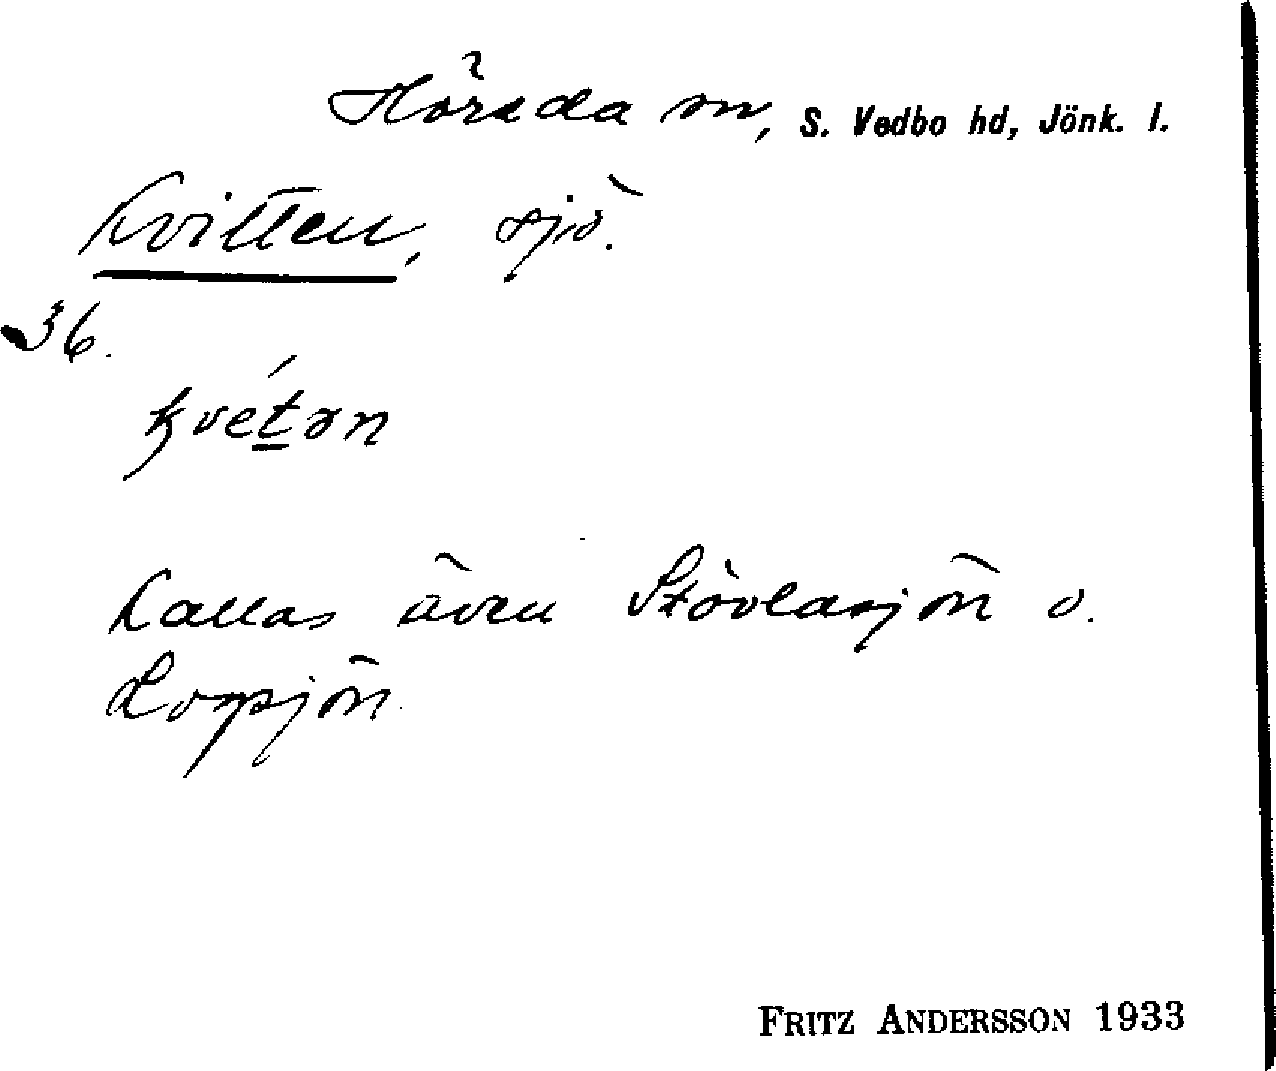 Höreda sn, S. Vedbo hd, Jönk. l.
Kvitten, sjö.
36.
kvétən
Kallas även Stövlasjön o.
Lopsjön.
FRITZ ANDERSSON 1933